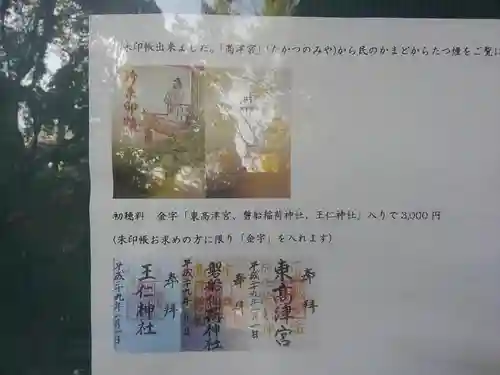 朱印帳出来ました。「高津宮」(たかつのみや)から民のかまどからたつ煙をご覧に
御朱印帳
初穂料　金字「東高津宮、磐船稲荷神社、王仁神社」入りで3,000円
(朱印帳お求めの方に限り「金字」を入れます)
奉拝
東高津宮
平成二十九年一月一日
奉拝
磐船稲荷神社
平成二十九年
奉拝
王仁神社
平成二十九年一月一日